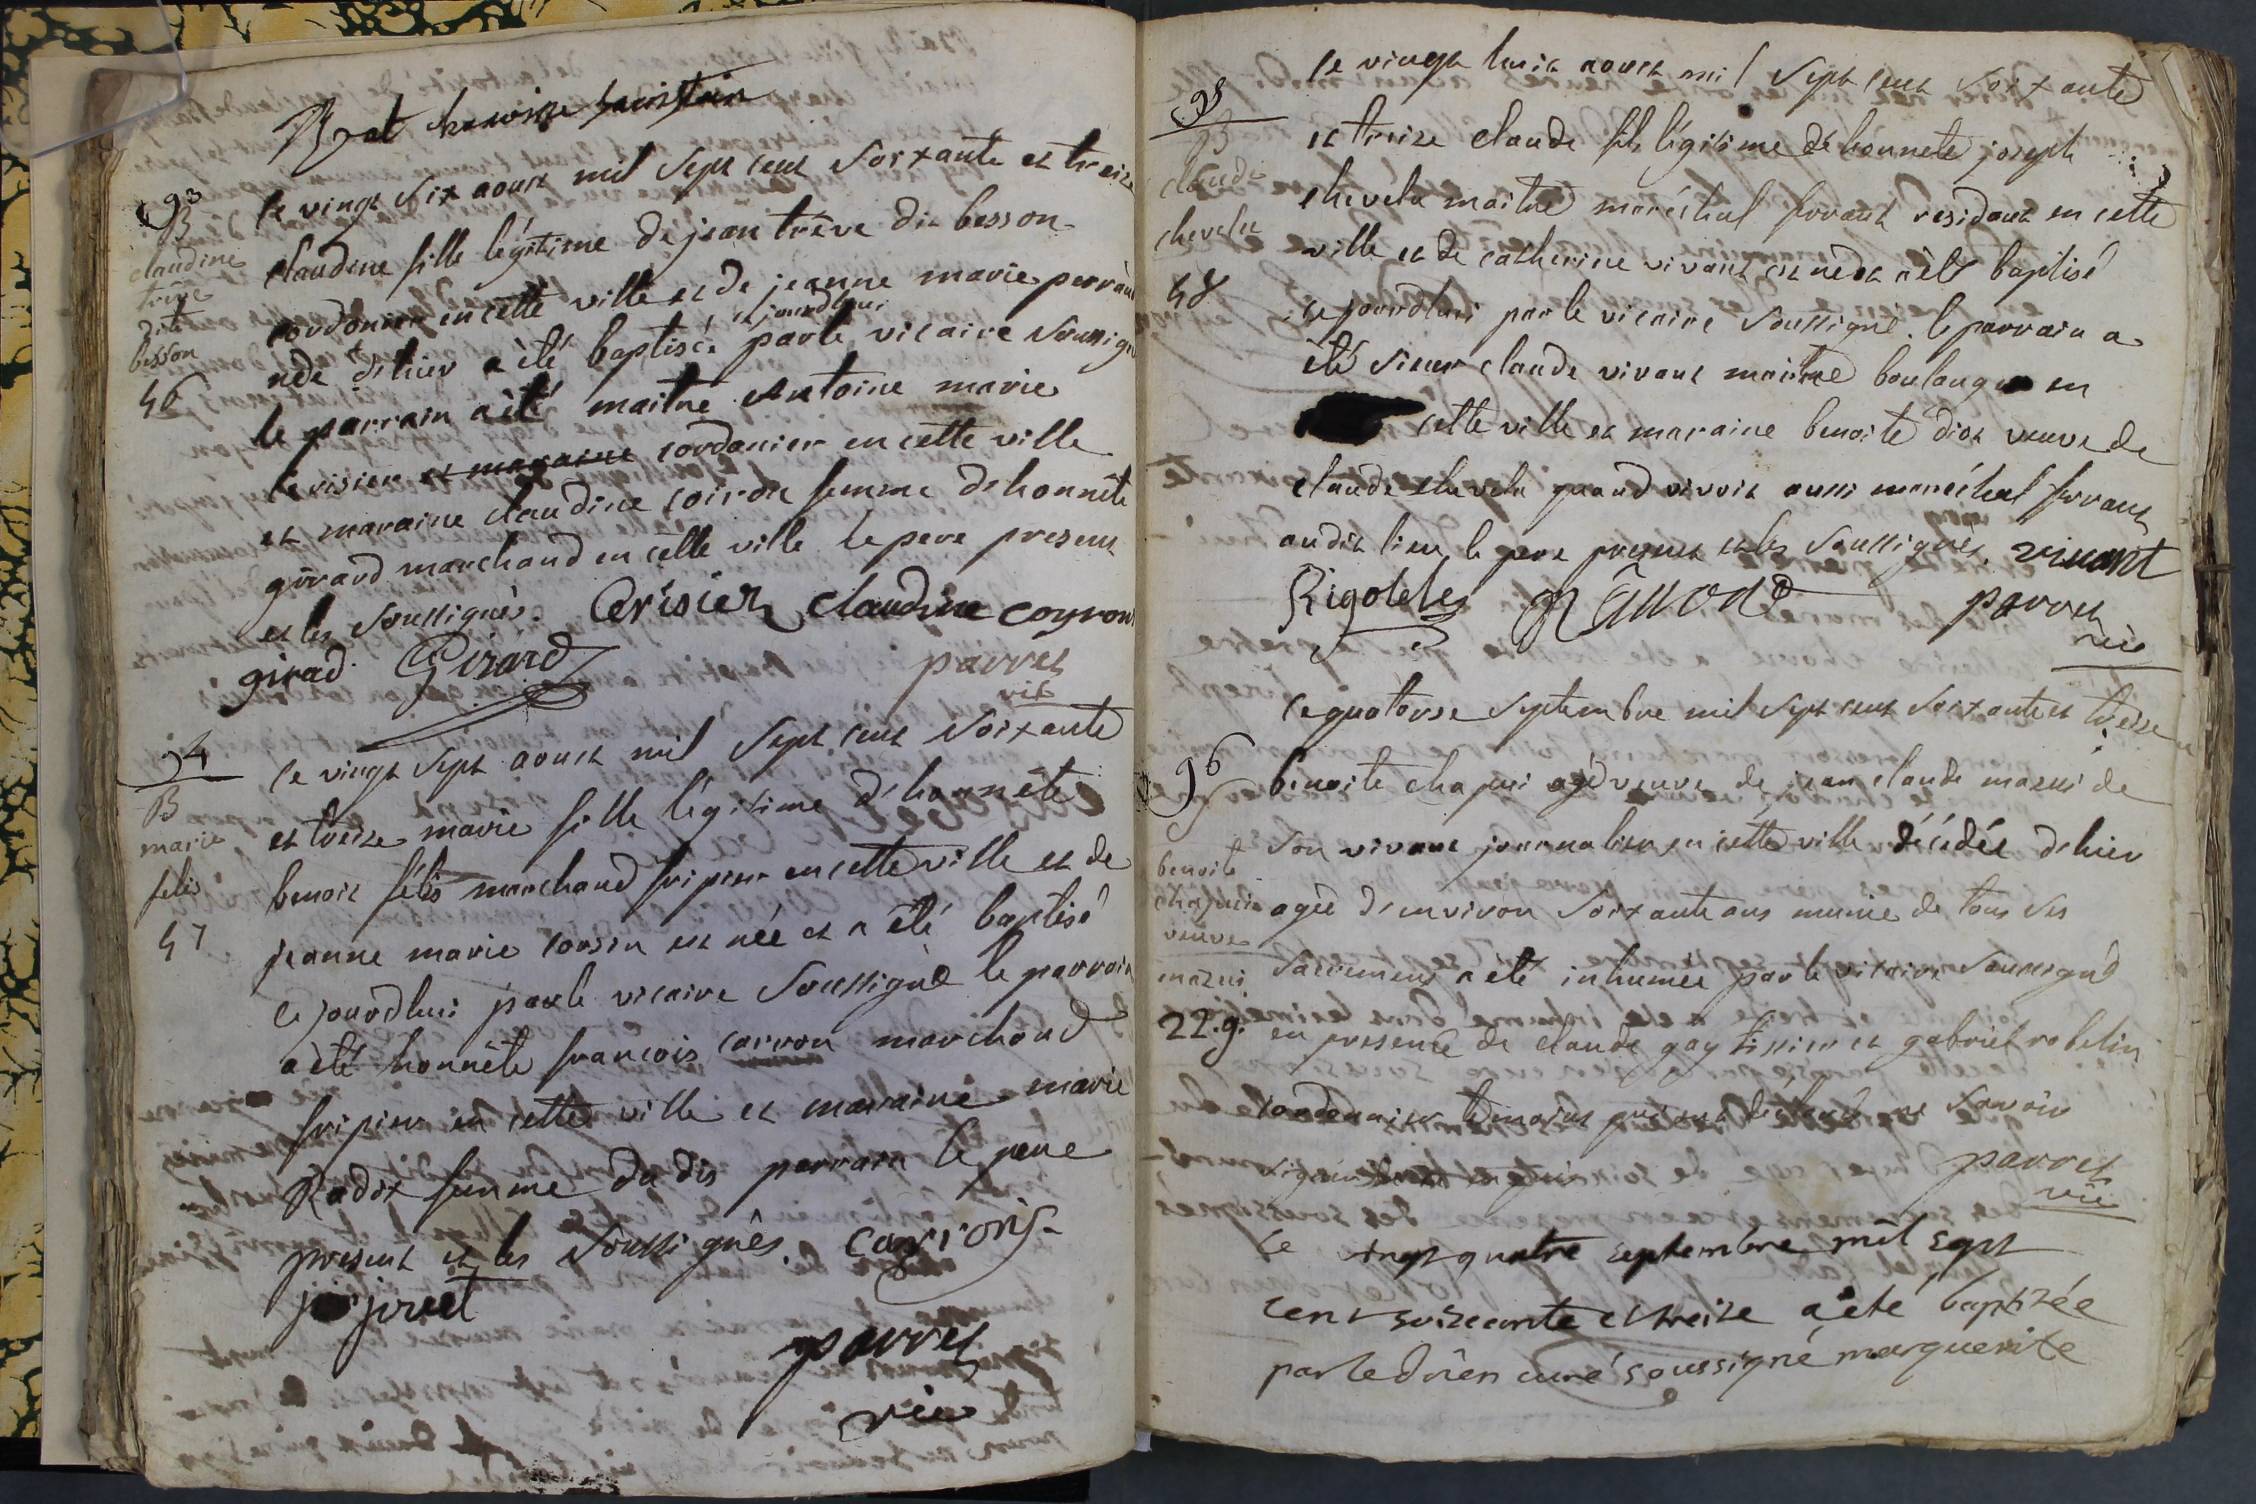 Byat chanoine sacristain
93
B
claudine
trêve
dite
besson
46
le vingt six aoust mil sept cent soixante et treize
claudine fille légitime de jean trêve dit besson
cordonier en cette ville et de jeanne marie perraud
née d'hier a été baptisée ce jourdhui par le vicaire soussigné
le parrain a été maitre antoine marie
cerisier et maraine cordonier en cette ville
et maraine claudine coiron femme d'honnête
girard marchand en cette ville le pere present
et les soussignés. Cerisier claudine coyron
girad. Girard parret
vic
94
B
marie
felis
47
le vingt sept aoust mil sept cent soixante
et treize marie fille légitime d'honnête
benoit félis marchand fripier en cette ville et de
jeanne marie cousin est née et a été baptisé
ce jourdhui par le vicaire soussigné le parrain
a été honnête françois carron marchand
fripier en cette ville et maraine marie
Radix femme du dit parrain le pere
present et les soussignés. cayron
parret
vic
95
B
claude
chevelu
48
le vingt huit aoust mil sept cent soixante
et treize claude fils légitime de honnete joseph
chevelu maitre maréchal ferrant residant en cette
ville et de catherine vivant est né et a été baptisé
ce jourdhui par le vicaire soussigné. le parrain a
été sieur claude vivant maitre boulanger en
cette ville et maraine benoite diot veuve de
claude chevelu quand vivoit aussi maréchal ferrant
audit lieu le pere present et les soussignés. vivant
Rigolelet parret
vic
96
benoite
chapuis
veuve
mazui
22.g.
le quatorse septembre mil sept cent soixante et treize
benoite chapui agé veuve de jean claude mazui de
son vivant journalier en cette ville décédée d'hier
agée d'environ soixante ans munie de tous ses
sacremens a été inhumée par le vicaire soussigné
en presence de claude gay tissier et gabriel robelin
cordonnier temoins qui ont déclaré ne savoir
signer
parret
vic
Le vingt quatre septembre mil sept
cent soixante et treize a été baptizée
par le doïen curé soussigné marguerite